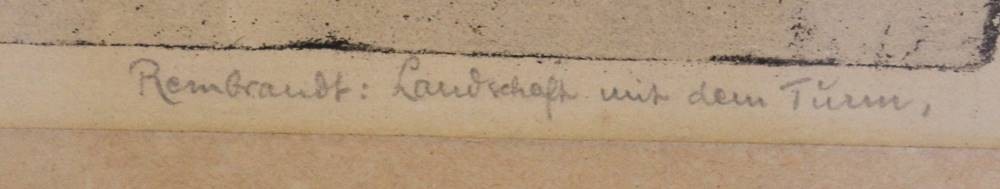 Rembrandt: Landschaft mit dem Turm,